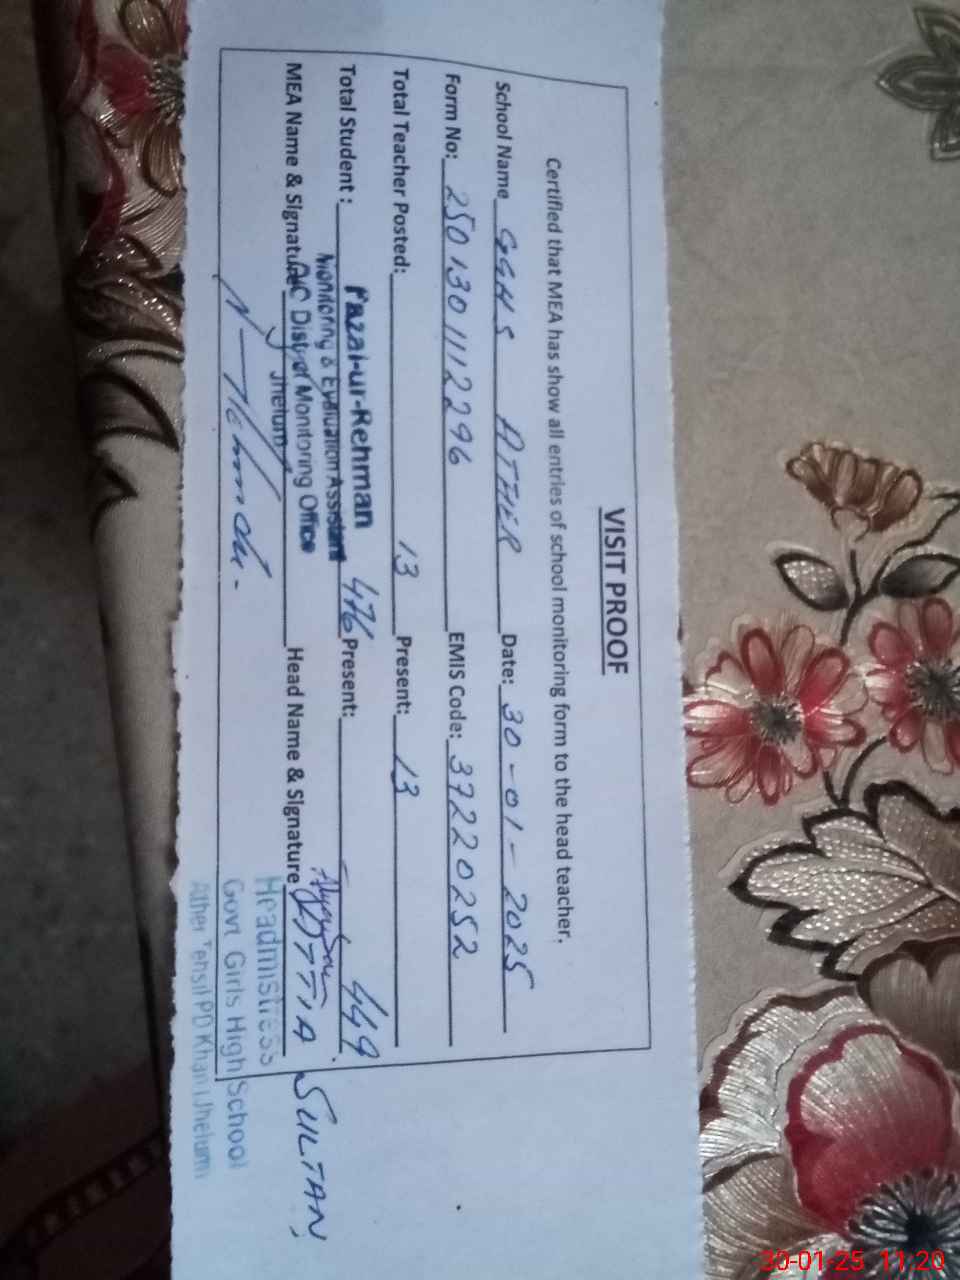 VISIT PROOF
Certified that MEA has show all entries of school monitoring form to the head teacher.
School Name GGHS ATHER Date: 30-01-2025
Form No: 2501301112296 EMIS Code: 37220252
Total Teacher Posted: 13 Present: 13
Total Student: 476 Present: 449
Fazal-ur-Rehman
Monitoring & Evaluation Assistant
MEA Name & Signature Head Name & Signature SULTAN
O/C District Monitoring Office
Jhelum
Headmistress
Govt Girls High School
Ather Tehsil PD Khan (Jhelum)
30-01-25 11:20